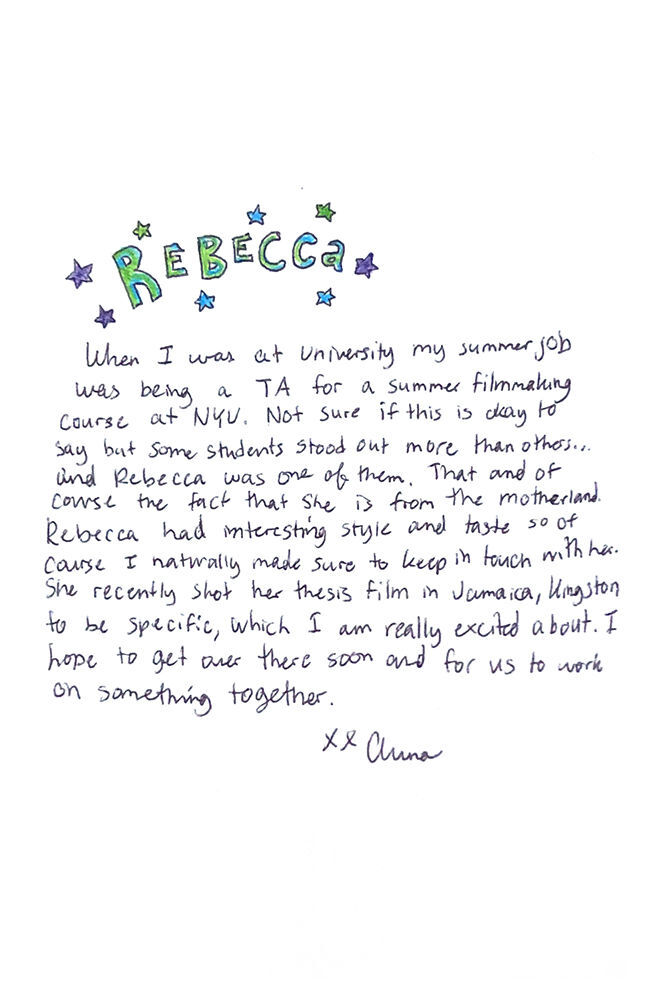 REBECCa
When I was at University my summer job
was being a TA for a summer filmmaking
course at NYU. Not sure if this is okay to
say but some students stood out more than others...
and Rebecca was one of them. That and of
course the fact that she is from the motherland.
Rebecca had interesting style and taste so of
course I naturally made sure to keep in touch with her.
She recently shot her thesis film in Jamaica, Kingston
to be specific, which I am really excited about. I
hope to get over there soon and for us to work
on something together.
xx